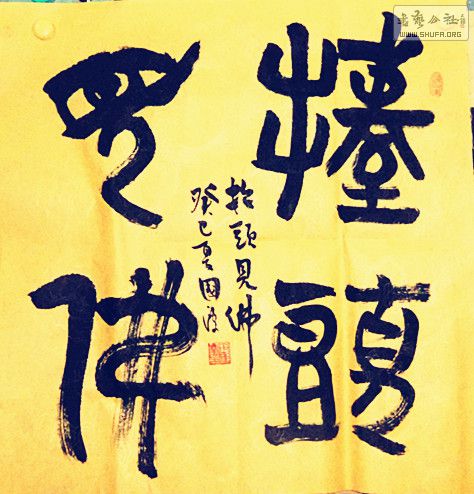 擡頭
見佛
抬頭見佛
癸巳夏國
書藝公社
WWW.SHUFA.ORG